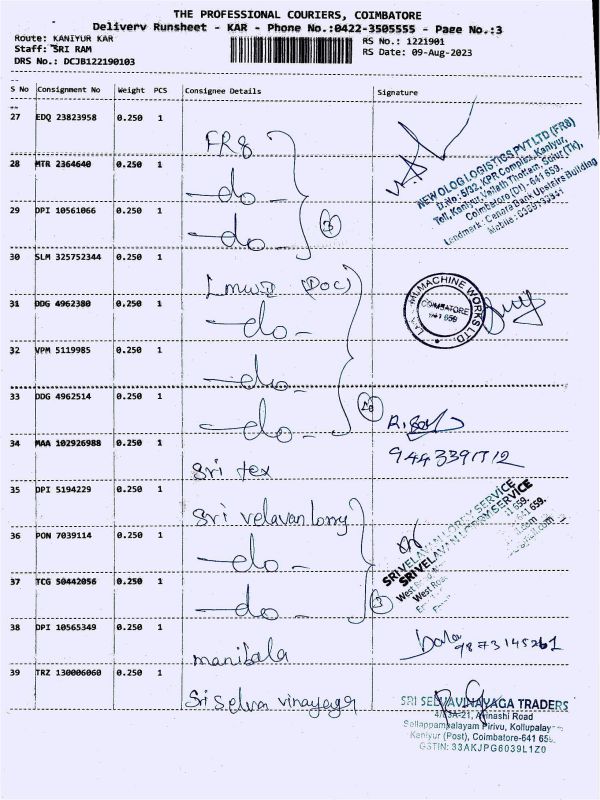 THE PROFESSIONAL COURIERS, COIMBATORE
Delivery Runsheet - KAR - Phone No.:0422-3505555 - Page No.:3
Route: KANIYUR KAR
RS No.: 1221901
Staff: SRI RAM
RS Date: 09-Aug-2023
DRS No.: DCJB122190103
S No Consignment No Weight PCS Consignee Details Signature
27 EDQ 23823958 0.250 1 FR8
28 MTR 2364640 0.250 1 -do-
29 DPI 10561066 0.250 1 -do- 3
NEW OLOG LOGISTICS PVT LTD (FR8)
D.No: 5/32, KPR Complex, Kaniyur,
Toll, Kaniyur, Thottam, Sulur (Tk),
Coimbatore (Dt) - 641 659.
Landmark: Canara Bank Upstairs Building
Mobile:
30 SLM 325752344 0.250 1 Lmwii (Doc)
31 DDG 4962380 0.250 1 -do-
MACHINE WORKS LTD
COIMBATORE
641 659
32 VPM 5119985 0.250 1 -do-
33 DDG 4962514 0.250 1 -do-
34 MAA 102926988 0.250 1 Sri tex
35 DPI 5194229 0.250 1 Sri velavan lorry
36 PON 7039114 0.250 1 -do-
37 TCG 50442056 0.250 1 -do- 3
SRI VELAVAN LORRY SERVICE
SRI VELAVAN LORRY SERVICE
38 DPI 10565349 0.250 1 manibala
Bala
9873145261
39 TRZ 130006060 0.250 1 Sri Selva vinayaga
SRI SELVAVINAYAGA TRADERS
Avinashi Road
Sellappampalayam Pirivu, Kollupalay
Kaniyur (Post), Coimbatore-641 65
GSTIN: 33AKJPG6039L1Z0